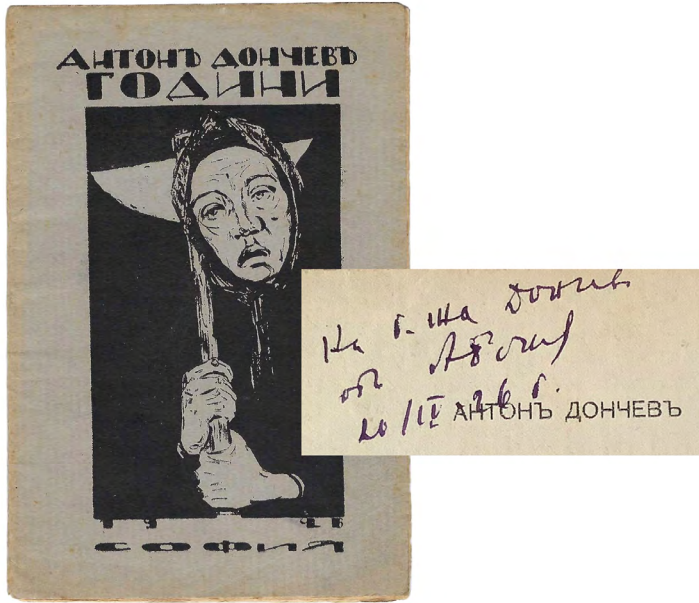 АНТОНЪ ДОНЧЕВЪ
ГОДИНИ
19 26
СОФИЯ
На г-жа Дончев
отъ
20/IV 26 г.
АНТОНЪ ДОНЧЕВЪ